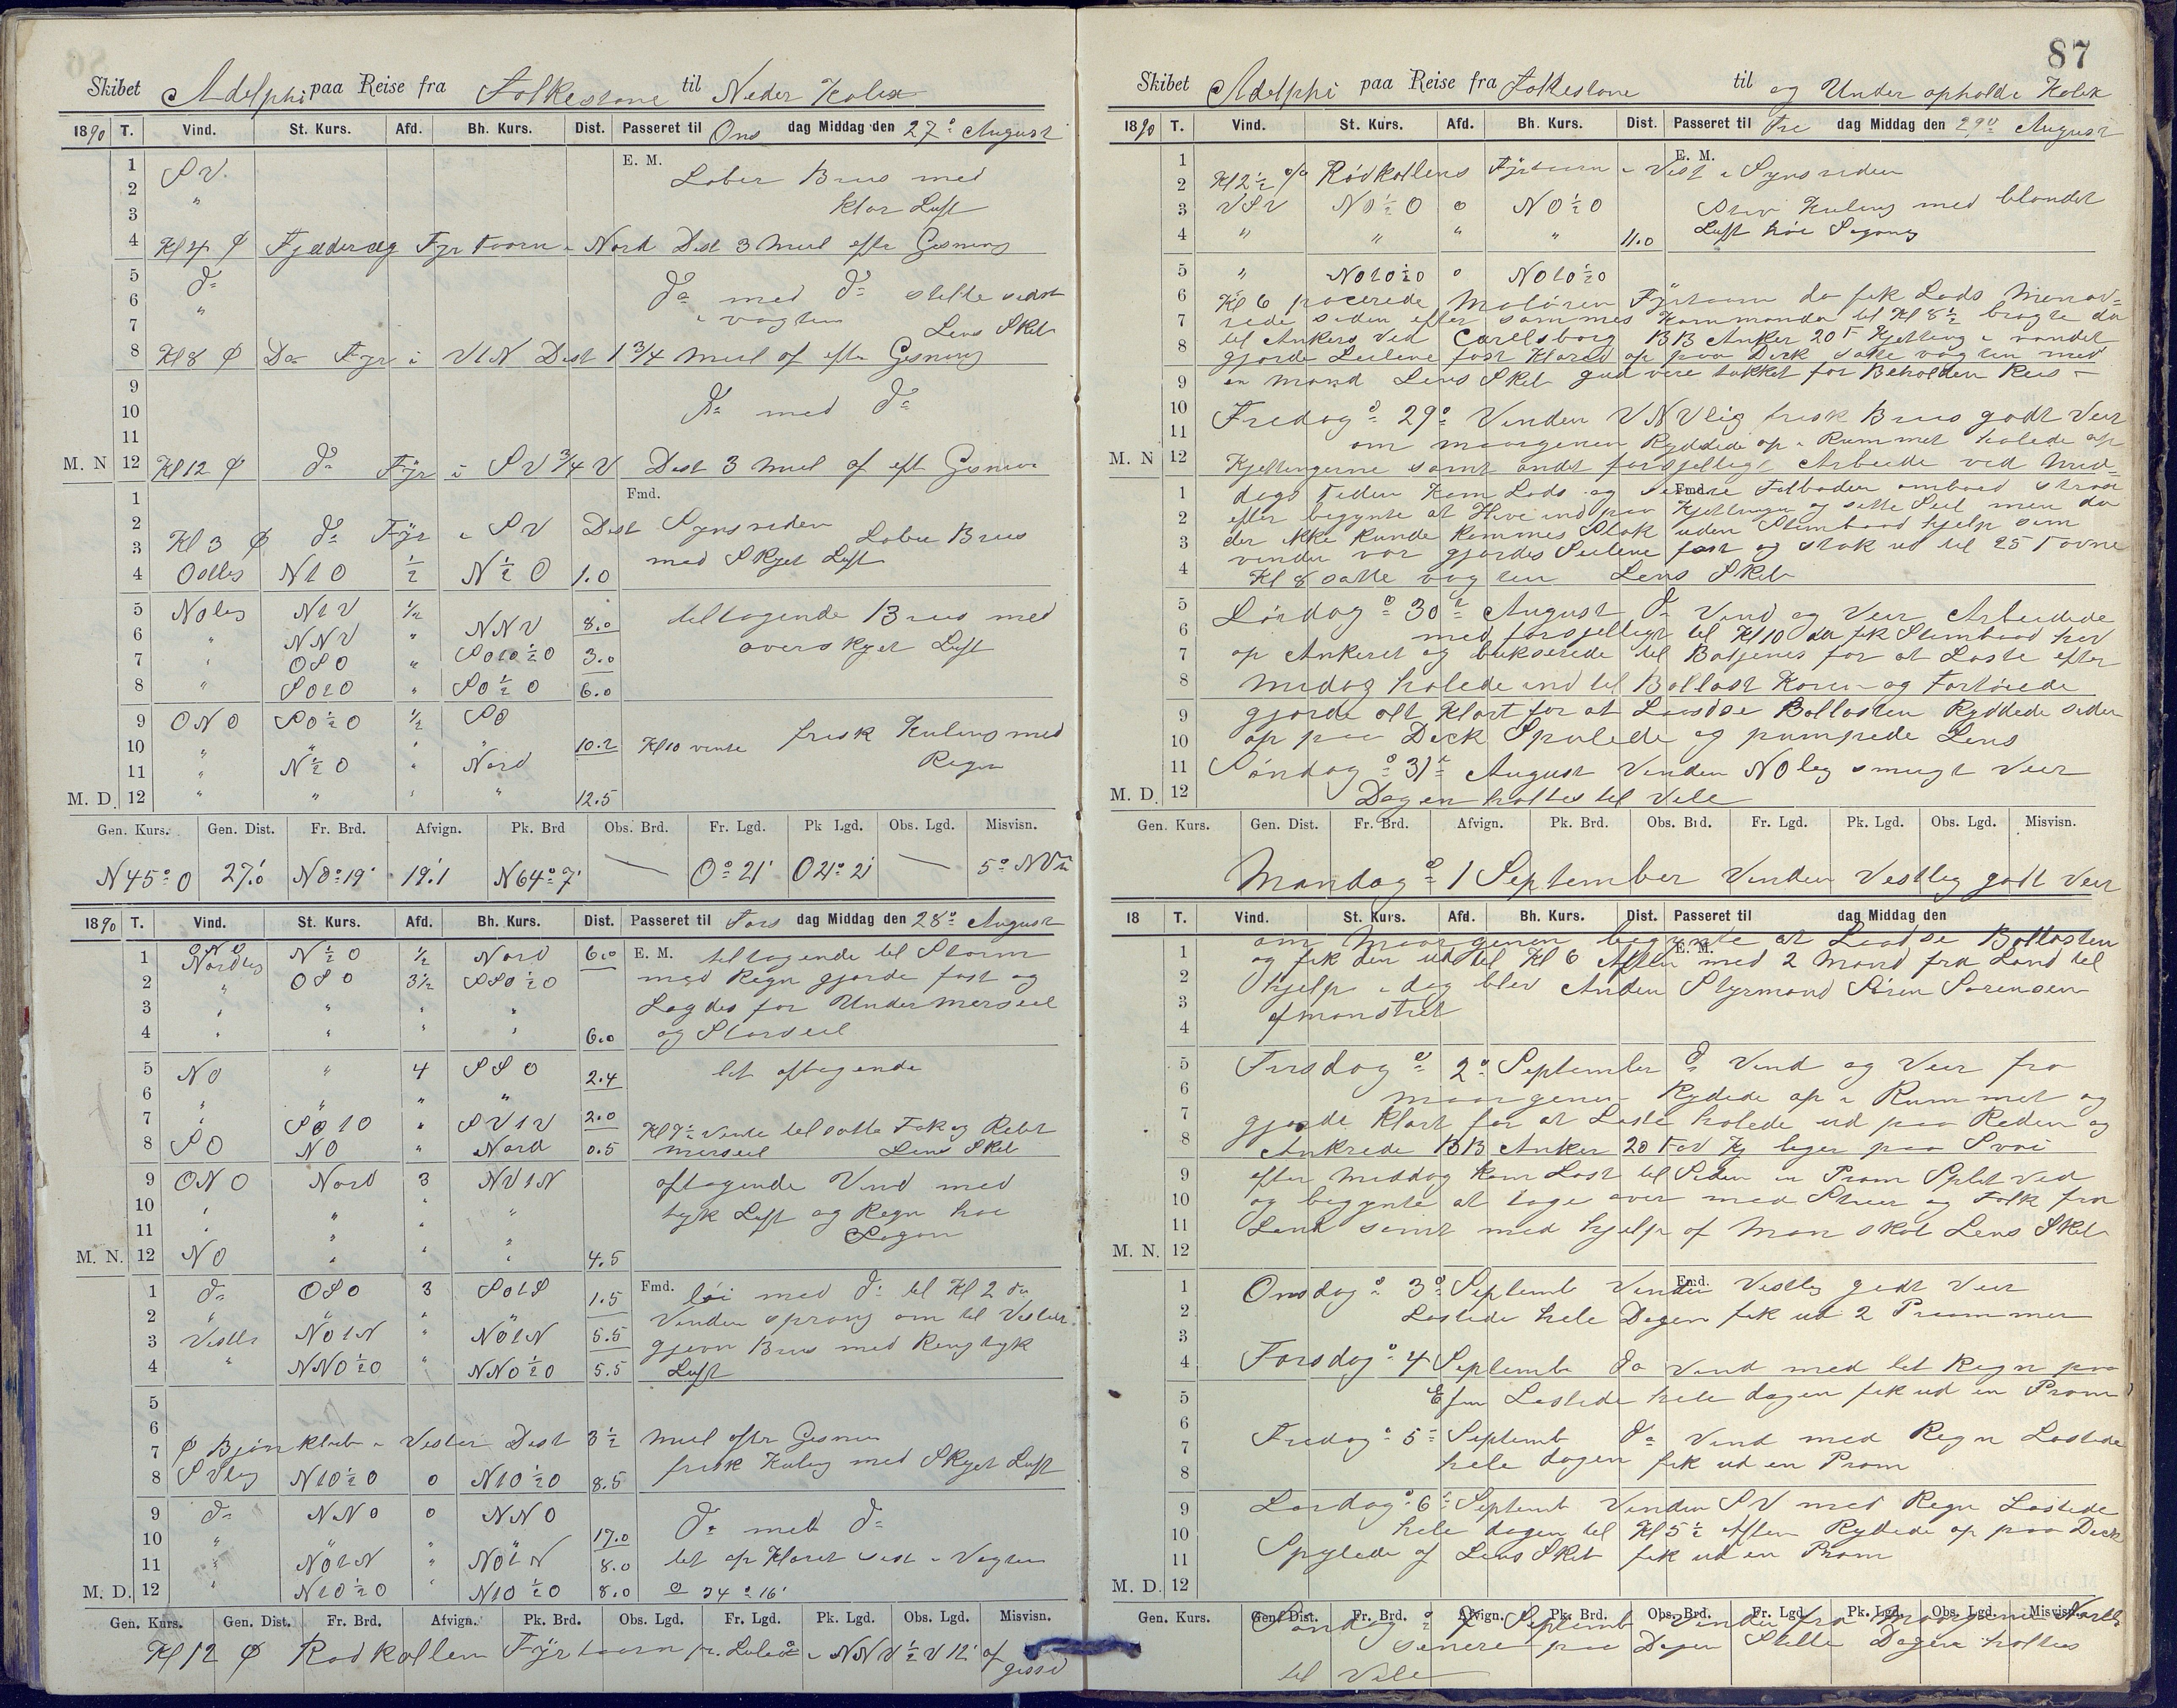 Skibet Adelphi paa Reise fra Folkestone til Neder Kalix
1890 T. Vind. St. Kurs. Afd. Bh. Kurs. Dist. Passeret til Ons dag Middag den 27º August
E. M.
1 SV. Laber Bries med
2 "
3 klar Luft
4 Kl 4 φ Fjæderæg Fyr taarn i Nord Dist 3 Miil efter Gisning
5 do
6 " do med do stille sidst
7 i vagten Lens Skib
8 Kl 8 φ Do Fyr i VtN Dist 1 3/4 Miil af efter Gisning
9
10 do med do
11
M. N 12 Kl 12 φ do Fyr i SV 3/4 V Dist 3 Miil af eft Gisnin
1 Fmd.
2
3 Kl 3 φ do Fyr i SV Dist Synsreden Laber Bries
4 Ostlig NtO 1/2 N 1/2 O 1.0 med Skyet Luft
5 Nolig NtV 1/2 NNV 8.0 tiltagende Bries med
6 " NNV " overskyet Luft
7 " OSO " SOtO 1/2 O 3.0
8 " SOtO " SO 1/2 O 6.0
9 ONO SO 1/2 O 1/2 SO
10 " " " " 10.2 Kl 10 vente frisk Kuling med
11 " N 1/2 O " Nord Regn
M. D. 12 " " " " 12.5
Gen. Kurs. Gen. Dist. Fr. Brd. Afvign. Pk. Brd Obs. Brd. Fr. Lgd. Pk Lgd. Obs. Lgd. Misvisn.
N 45º O 27.0 N 0º 19' 19.1 N 64º 7' — O º 21' O 21º 21' — 5º NV
1890 T. Vind. St. Kurs. Afd. Bh. Kurs. Dist. Passeret til Tors dag Middag den 28º August
1 ONO Nordlig N 1/2 O 1/2 Nord 6.0 E. M. tiltagende til Storm
2 " OSO 3 1/2 SSO 1/2 O med Regn gjorde fast og
3 " " " " Lagdes for Undermerseil
4 " " " " 6.0 og Storseil
5 NO " 4 SSO 2.4 lit aftagende
6 " " " "
7 " SOtO " SVtV 2.0 Kl 7 1/2 Vente til satte Fok og Rebt
8 SO NO " Nord 0.5 merseil Lens Skib
9 ONO Nord 3 NVtN aftagende Vind med
10 " " " " tyk Luft og Regn høi
11 " " " " Søgan
M. N. 12 NO " " " 4.5
1 do OSO 3 SOtS 1.5 Fmd. løi med do til Kl 2 da
2 " " " " Vinden sprang om til Vester
3 Vestlig NOtN " NOtN 5.5 gjevn Bries med Regntyk
4 " NNO 1/2 O " NNO 1/2 O 5.5 Luft
5
6
7 φ Bjørnklub i Vester Dist 3 1/2 Miil efter Gisnin
8 SVlig NtO 1/2 O 0 NtO 1/2 O 8.5 frisk Kuling med Skyet Luft
9 do NNO 0 NNO
10 " " " " 17.0 do med do
11 " NOtN " NOtN 8.0 lit op Klaret sidst i Vagten
M. D. 12 " NtO 1/2 O " NtO 1/2 O 8.0 24º 16'
Gen. Kurs. Gen. Dist. Fr. Brd. Afvign. Pk. Brd. Obs. Lgd. Fr. Lgd. Pk. Lgd. Obs. Lgd. Misvisn.
Kl 12 φ Rødkallen Fyrtaarn pr. Luleå i NNV 1/2 V 12' af gissd
87
Skibet Adelphi paa Reise fra Folkestone til og Under opholdt Kalix
1890 T. Vind. St. Kurs. Afd. Bh. Kurs. Dist. Passeret til Fre dag Middag den 29º August
1 E. M.
2 Kl 2 1/2 Rødkallens Fyrtaarn i Vest i Synsreden
3 VSV NO 1/2 O 0 NO 1/2 O Stiv Kuling med blandet
4 " " " " 11.0 Luft høi Søgang
5 " NOtO 1/2 O 0 NOtO 1/2 O
6 Kl 6 pacerede Maløren Fyrtaarn da fik Lods Manøv=
7 rede siden efter sammes Kommando til Kl 8 1/2 bragte da
8 til Ankers ved Carlsborg BB Anker 20 F Kjetting i vandet
gjorde Seilene fast Klared op paa Deck satte vagten med
9 en mand Lens Skib gud vere takket for Beholden Reis
10 Fredag d 29º Vinden VNVlig frisk Bries godt Veir
11 om maargenen Ryddede op i Rummet halede op
M. N 12 Kjettingerne samt andet forsjelligt Arbeide ved Mid=
1 dags tiden Kom Lods og Fmd. ombord strax
2 efter begynte at Hive ind paa Kjettingen og sette Seil men da
3 der ikke kunde kommes Stok uden Stimbaad hjelp som
vinden var gjordes Seilene fast og stak ud til 25 Favne
4 Kl 8 satte vagten Lens Skib
5 Lørdag d 30t August do Vind og Veir Arbeidede
6 med forsjelligt til Kl 10 da fik Stimbaad hev
7 op Ankeret og bukserede til Båtjenes for at Laste efter
8 midag halede ind til Ballast Karen og Fortøiede
9 gjorde alt klart for at Laasse Ballasten Ryddede siden
10 op paa Deck Spulede og pumpede Lens
11 Søndag d 31t August Vinden NOlig smugt Veir
M. D. 12 Dagen holtes til Vile
Gen. Kurs. Gen. Dist. Fr. Brd. Afvign. Pk. Brd. Obs. Brd. Fr. Lgd. Pk. Lgd. Obs. Lgd. Misvisn.
Mandag d 1 September Vinden Vestlig godt Veir
18 T. Vind. St. Kurs. Afd. Bh. Kurs. Dist. Passeret til dag Middag den
om Maargenen begynte at Laadse Ballasten
1 og fik den ud til Kl 6 Aften E. M. med 2 Mand fra Land til
2 hjelp i dag blev Anden Styrmand Søren Sørensen
3 afmønstret
4
5 Tirsdag d 2º September do Vind og Veir fra
6 maargenen Rydede op i Rummet og
7 gjorde Klart for at Laste halede ud paa Reden og
8 Ankrede BB Anker 20 Fav Kj liger paa Svai
9 efter Middag kom Last til Siden en Pram Splitved
10 og begynte at tage over med Stuer og Folk fra
11 Land samt med hjelp af Manskab Lens Skib
M. N. 12
1 Onsdag d 3º Septemb Vinden Fmd. Vestlig godt Veir
2 Lastede hele Dagen fik ud 2 Prammer
3
4 Torsdag d 4 Septemb do Vind med let Regn paa
5 Efm Lastede hele dagen fik ud en Pram
6
7 Fredag d 5 Septemb do Vind med Regn Lastede
8 hele dagen fik ud en Pram
9 Lørdag d 6 Septemb Vinden SV med Regn Lastede
10 hele dagen til Kl 5 1/2 Aften Ryddede op paa Deck
11 Spylede af Lens Skib fik ud en Pram
M. D. 12
Gen. Kurs. Gen. Dist. Fr. Brd. Afvign. Pk. Brd. Obs. Brd. Fr. Lgd. Pk. Lgd. Obs. Lgd. Misvisn.
Søndag d 7 Septemb Vinden fra Maargenen Nordlig
senere paa Dagen Stille Dagen holtes
til Vile